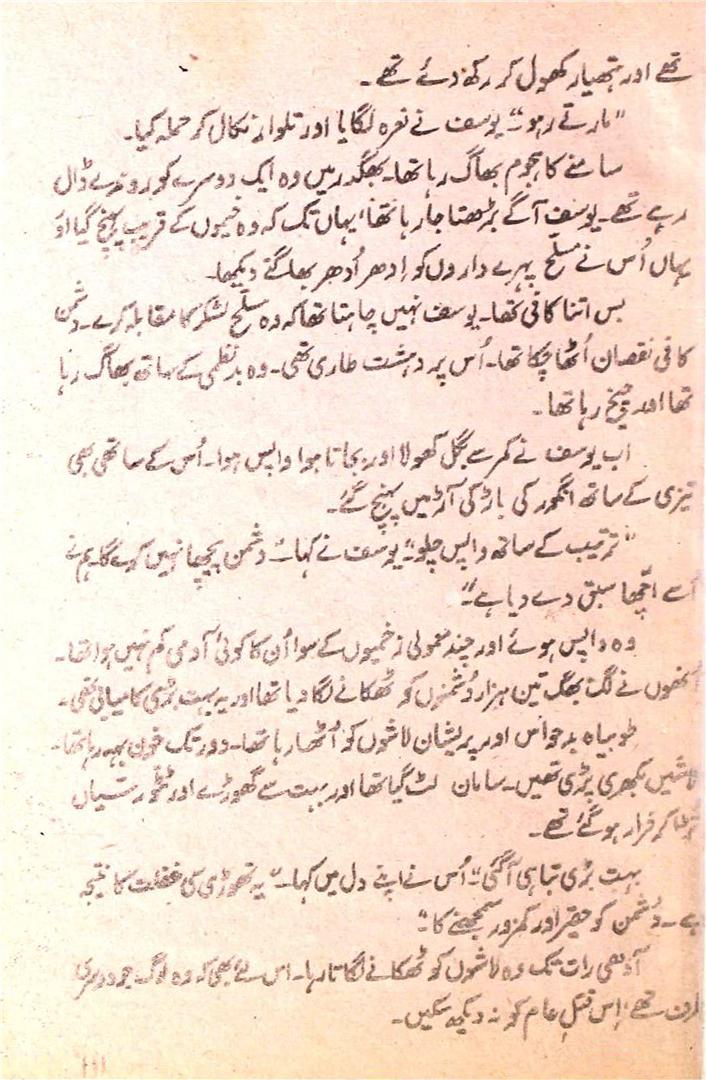 تھے اور ہتھیار کھول کر رکھ دئے تھے۔
"مارتے رہو" یوسف نے نعرہ لگایا اور تلوار نکال کر حملہ کیا۔
سامنے کا ہجوم بھاگ رہا تھا۔ بھگدر میں وہ ایک دوسرے کو روندے ڈال
رہے تھے۔ یوسف آگے بڑھتا جا رہا تھا، یہاں تک کہ وہ خیموں کے قریب پہنچ گیا اور
یہاں اُس نے مسلح پہرے داروں کو اِدھر اُدھر بھاگتے دیکھا۔
بس اتنا کافی تھا۔ یوسف نہیں چاہتا تھا کہ وہ مسلح لشکر کا مقابلہ کرے۔ دشمن
کافی نقصان اُٹھا چکا تھا۔ اُس پر دہشت طاری تھی۔ وہ بدنظمی کے ساتھ بھاگ رہا
تھا اور چیخ رہا تھا۔
اب یوسف نے کمر سے بگل کھولا اور بجاتا ہوا واپس ہوا۔ اُس کے ساتھی بھی
تیزی کے ساتھ انگور کی باڑ کی آڑ میں پہنچ گئے۔
"ترتیب کے ساتھ واپس چلو" یوسف نے کہا۔ "دشمن پیچھا نہیں کرے گا۔ ہم نے
اُسے اچھا سبق دے دیا ہے"
وہ واپس ہوئے اور چند معمولی زخمیوں کے سوا اُن کا کوئی آدمی کم نہیں ہوا تھا۔
اُنھوں نے لگ بھگ تین ہزار دُشمنوں کو ٹھکانے لگا دیا تھا اور یہ بہت بڑی کامیابی تھی۔
طوبیاہ بدحواس اور پریشان لاشوں کو اُٹھا رہا تھا۔ دور تک خون بہہ رہا تھا۔
لاشیں بکھری پڑی تھیں۔ سامان لٹ گیا تھا اور بہت سے گھوڑے اور ٹٹو رسیاں
تڑا کر فرار ہو گئے تھے۔
بہت بڑی تباہی آگئی" اُس نے اپنے دل میں کہا۔ "یہ تھوڑی سی غفلت کا نتیجہ
ہے۔ دُشمن کو حقیر اور کمزور سمجھنے کا"
آدھی رات تک وہ لاشوں کو ٹھکانے لگاتا رہا۔ اس لئے بھی کہ وہ لوگ جو دوسری
طرف تھے، اِس قتلِ عام کو نہ دیکھ سکیں۔